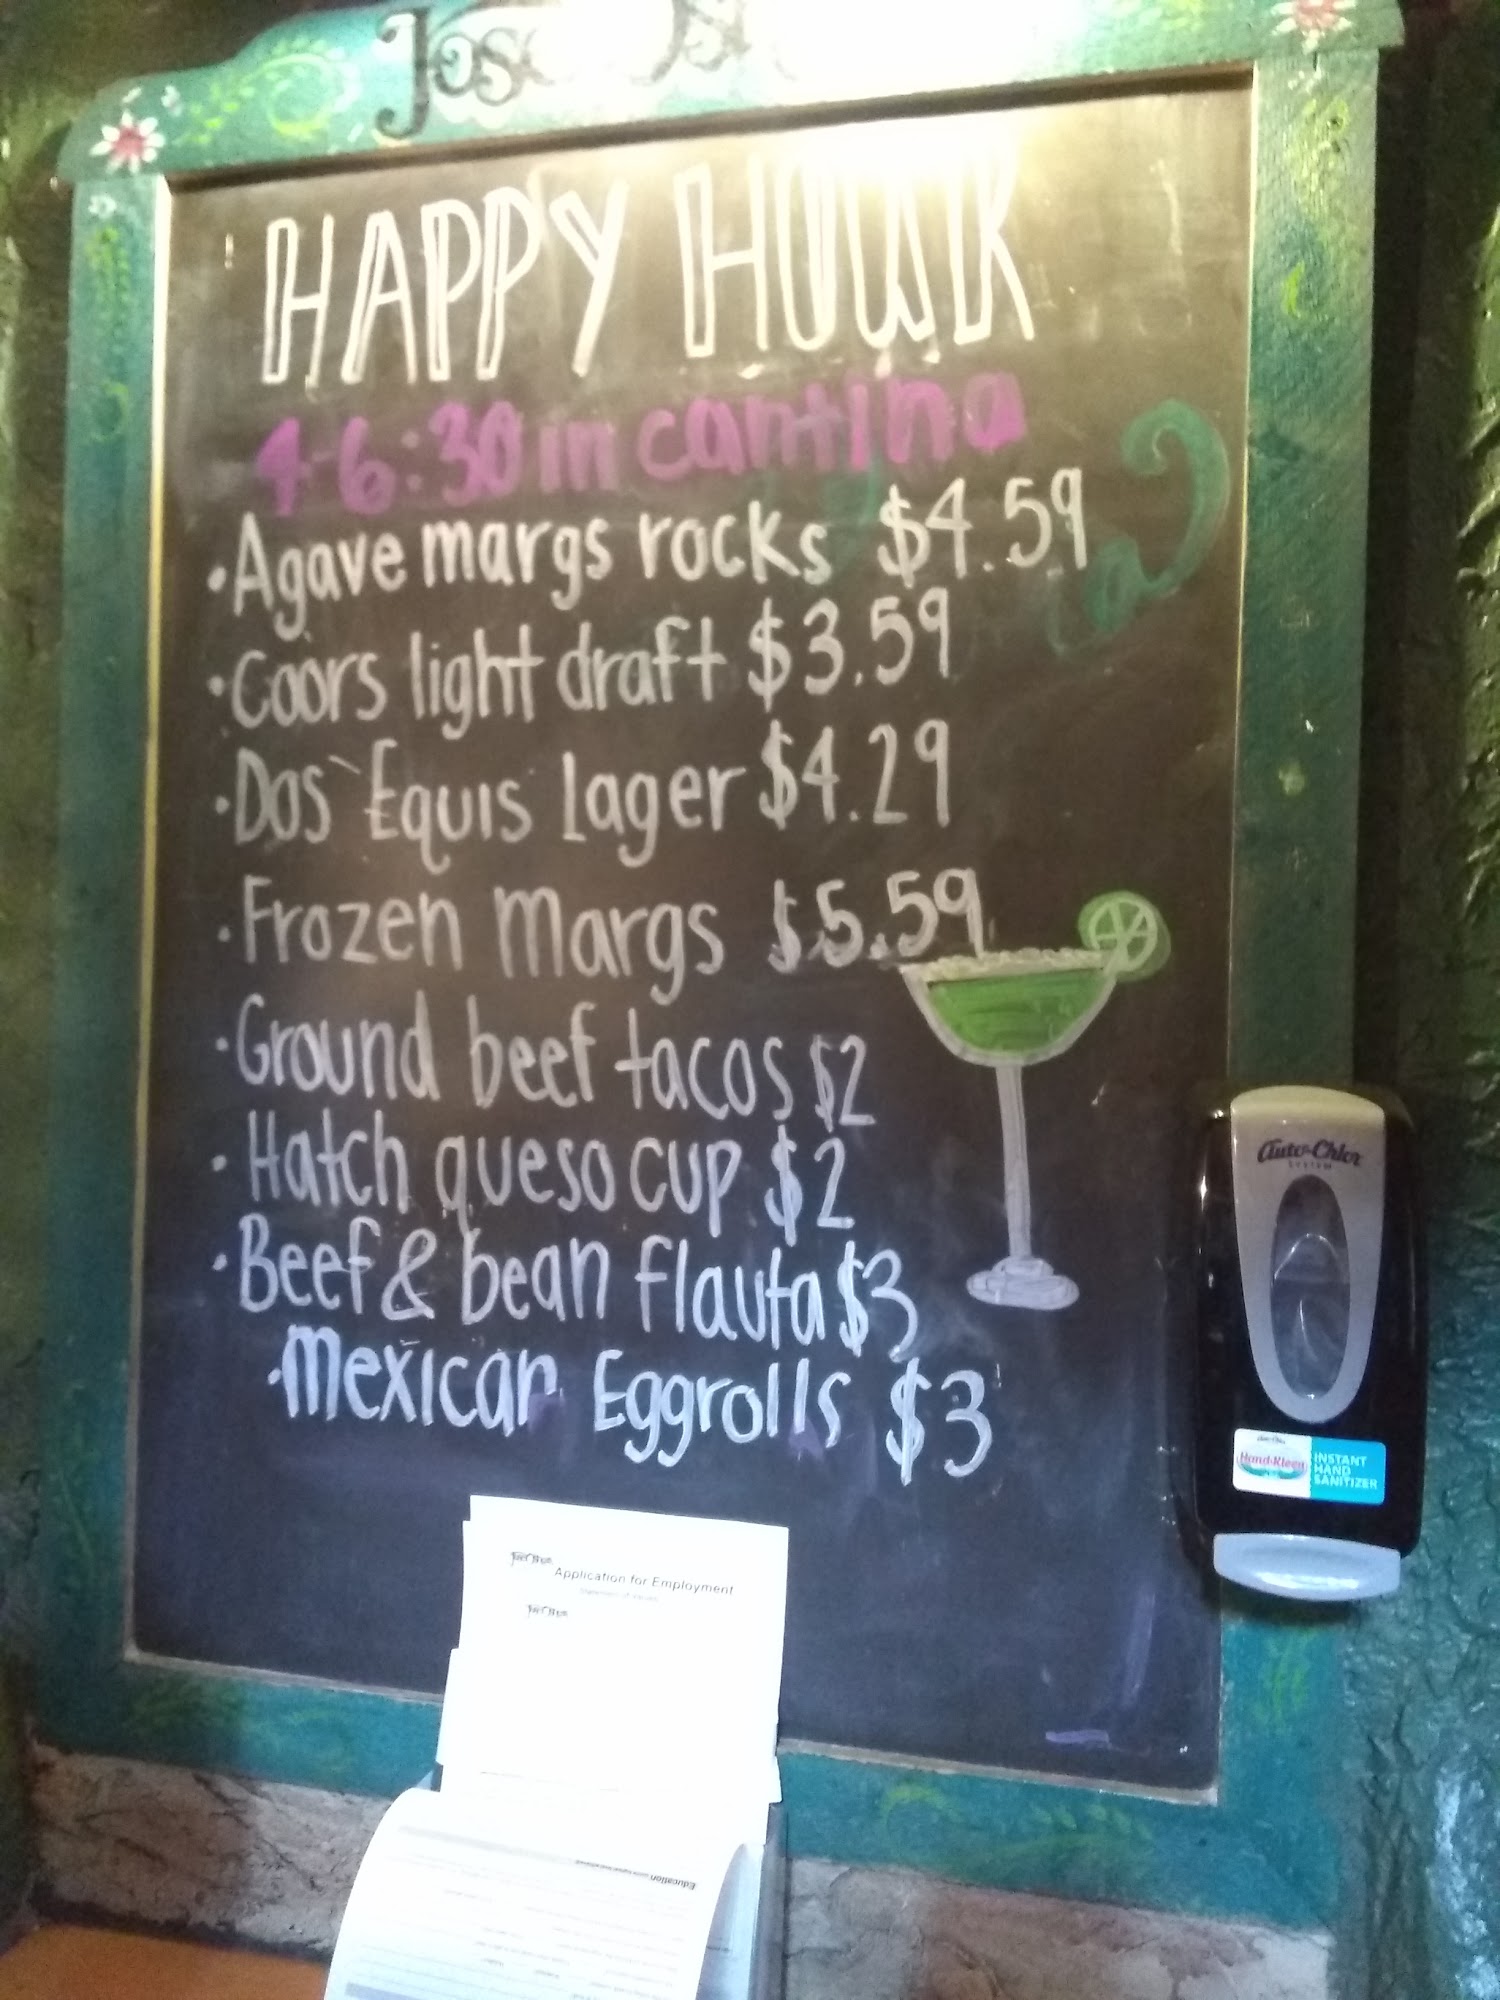 HAPPY HOUR
4-6:30 in cantina
• Agave margs rocks $4.59
• Coors light draft $3.59
• Dos Equis Lager $4.29
• Frozen Margs $5.59
• Ground beef tacos $2
• Hatch queso cup $2
• Beef & bean flauta $3
• Mexican Eggrolls $3
Auto-Chlor
SYSTEM
Hand-Kleen
INSTANT
HAND
SANITIZER
Application for Employment
Education